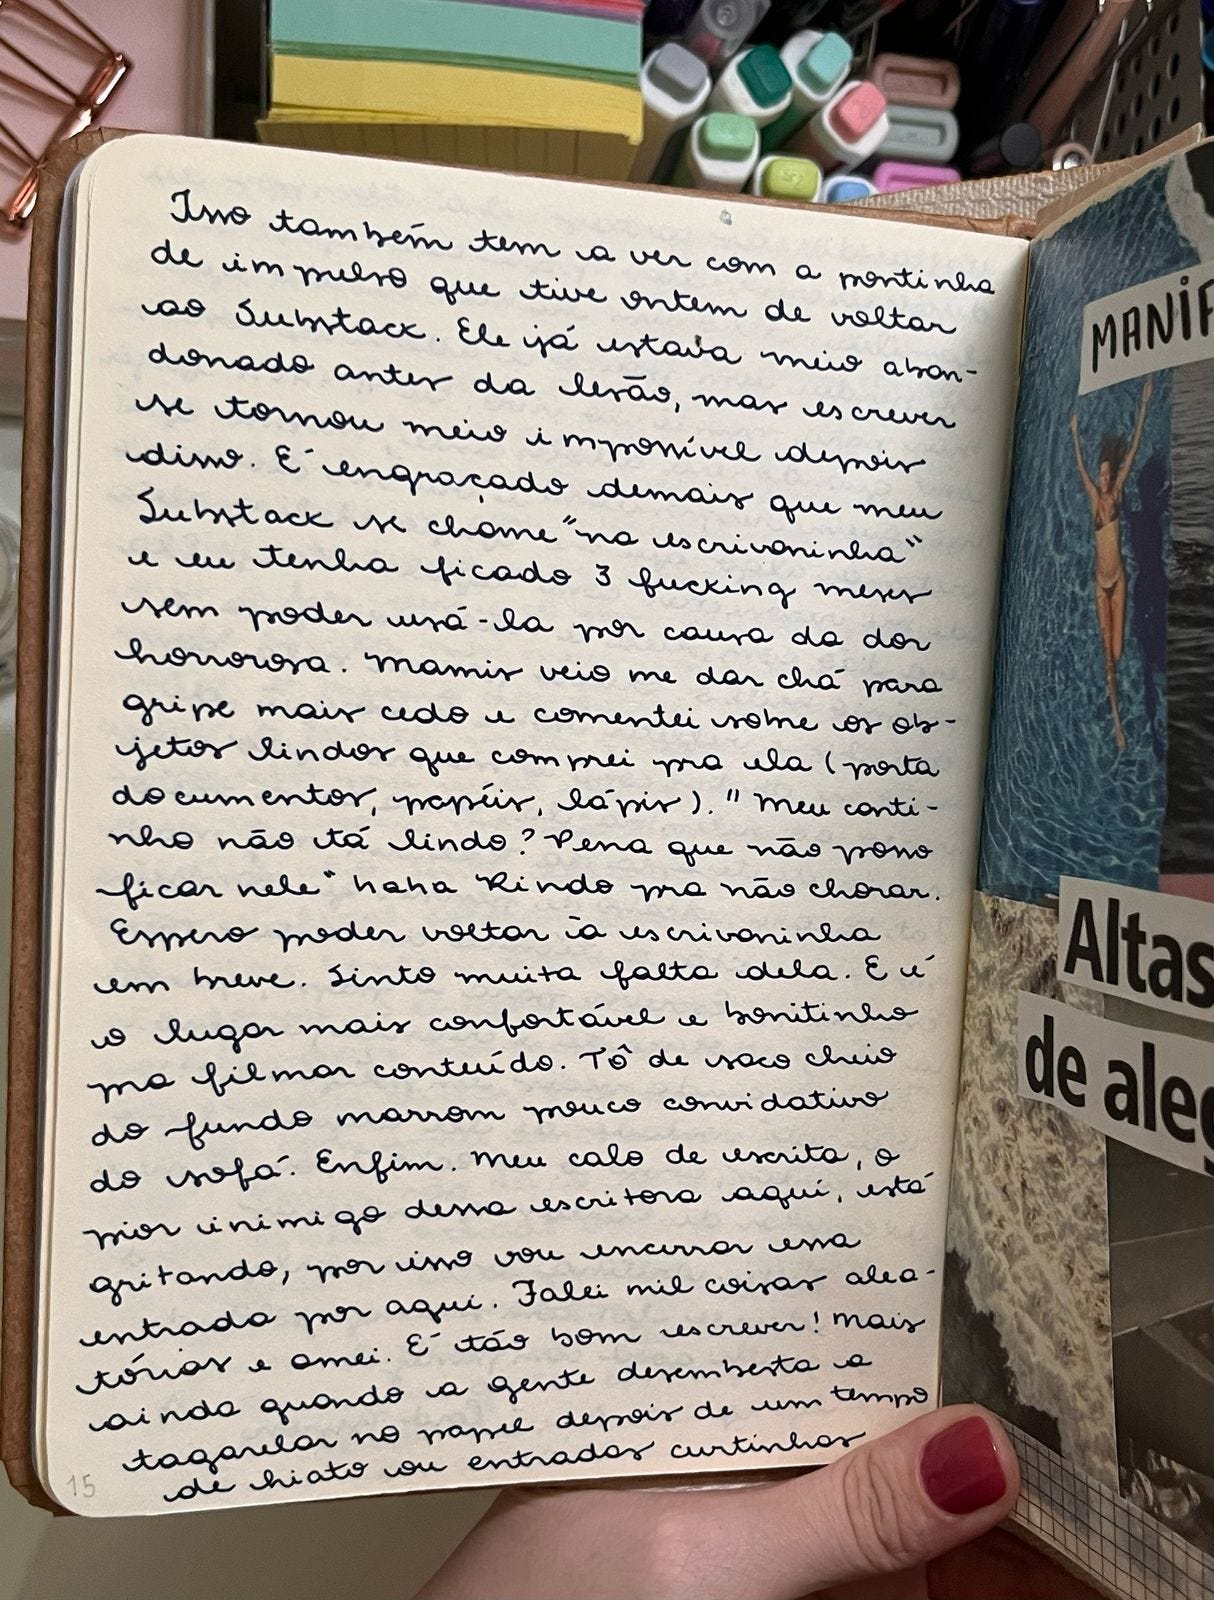 Isso também tem a ver com a pontinha
de impulso que tive ontem de voltar
ao Substack. Ele já estava meio aban-
donado antes da lesão, mas escrever
se tornou meio impossível depois
disso. É engraçado demais que meu
Substack se chame "na escrivaninha"
e eu tenha ficado 3 fucking meses
sem poder usá-la por causa da dor
horrorosa. Mamis veio me dar chá para
gripe mais cedo e comentei sobre os ob-
jetos lindos que comprei pra ela (porta
documentos, papéis, lápis). "Meu canti-
nho não tá lindo? Pena que não posso
ficar nele" haha Rindo pra não chorar.
Espero poder voltar à escrivaninha
em breve. Sinto muita falta dela. E é
o lugar mais confortável e bonitinho
pra filmar conteúdo. Tô de saco cheio
do fundo marrom pouco convidativo
do sofá. Enfim. Meu calo de escrita, o
pior inimigo dessa escritora aqui, está
gritando, por isso vou encerrar essa
entrada por aqui. Falei mil coisas alea-
tórias e amei. É tão bom escrever! Mais
ainda quando a gente desembesta a
tagarelar no papel depois de um tempo
de hiato ou entradas curtinhas
15
MANIF
Altas
de aleg